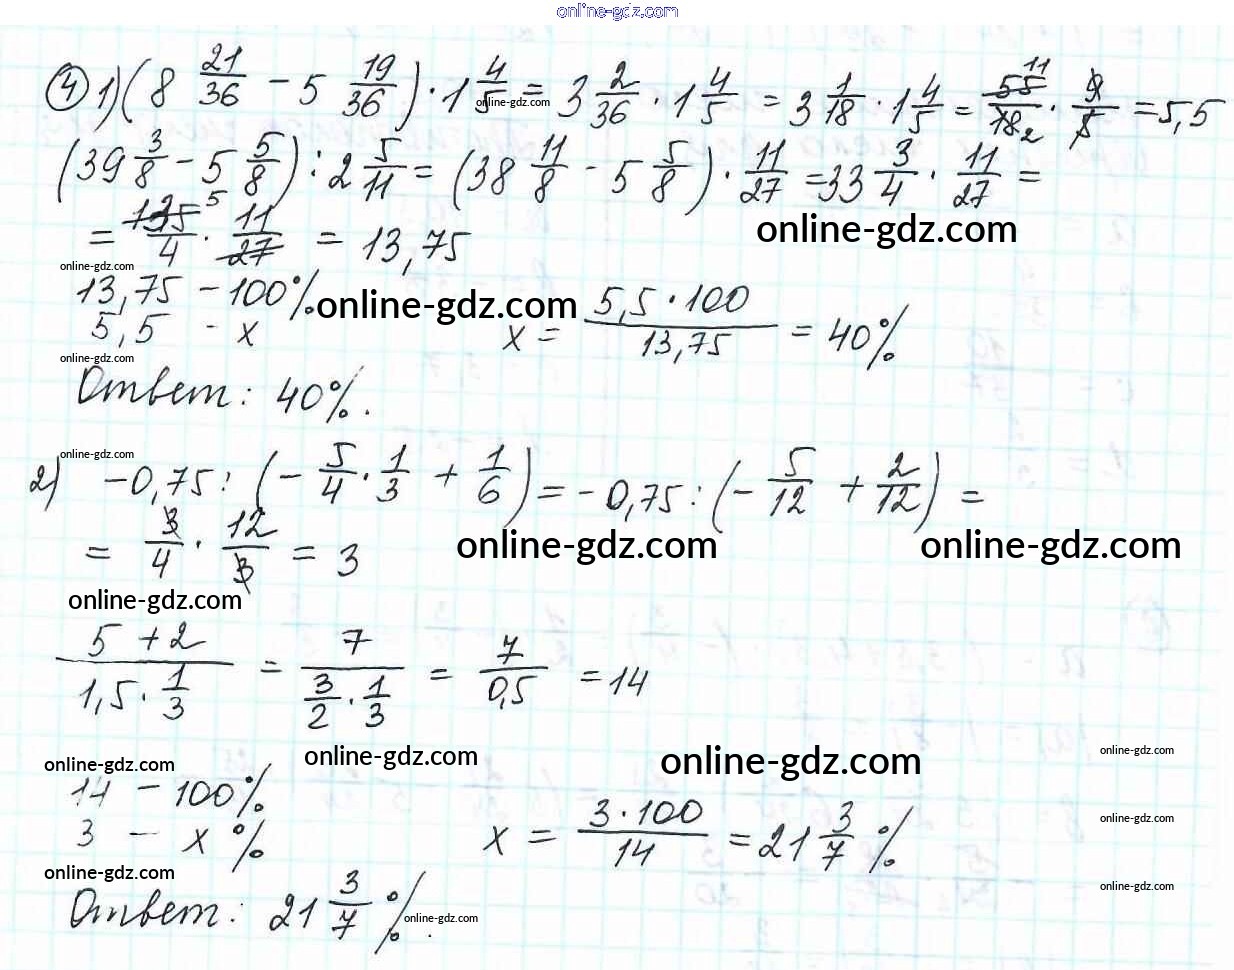 online-gdz.com
④ 1) (8 21/36 - 5 19/36) · 1 4/5 = 3 2/36 · 1 4/5 = 3 1/18 · 1 4/5 = 55/18 11 2 · 9/5 = 5,5
online-gdz.com
(39 3/8 - 5 5/8) : 2 5/11 = (38 11/8 - 5 5/8) · 11/27 = 33 3/4 · 11/27 =
= 135/4 5 · 11/27 = 13,75
online-gdz.com
online-gdz.com
13,75 - 100%
online-gdz.com
5,5 - x x = 5,5 · 100/13,75 = 40%
online-gdz.com
Ответ: 40%.
online-gdz.com
2) -0,75 : (- 5/4 · 1/3 + 1/6) = -0,75 : (- 5/12 + 2/12) =
= 3/4 · 12/3 = 3
online-gdz.com
online-gdz.com
online-gdz.com
5 + 2/1,5 · 1/3 = 7/3/2 · 1/3 = 7/0,5 = 14
online-gdz.com
online-gdz.com
online-gdz.com
online-gdz.com
14 - 100%
3 - x % x = 3 · 100/14 = 21 3/7 %
online-gdz.com
online-gdz.com
online-gdz.com
Ответ: 21 3/7 %.
online-gdz.com